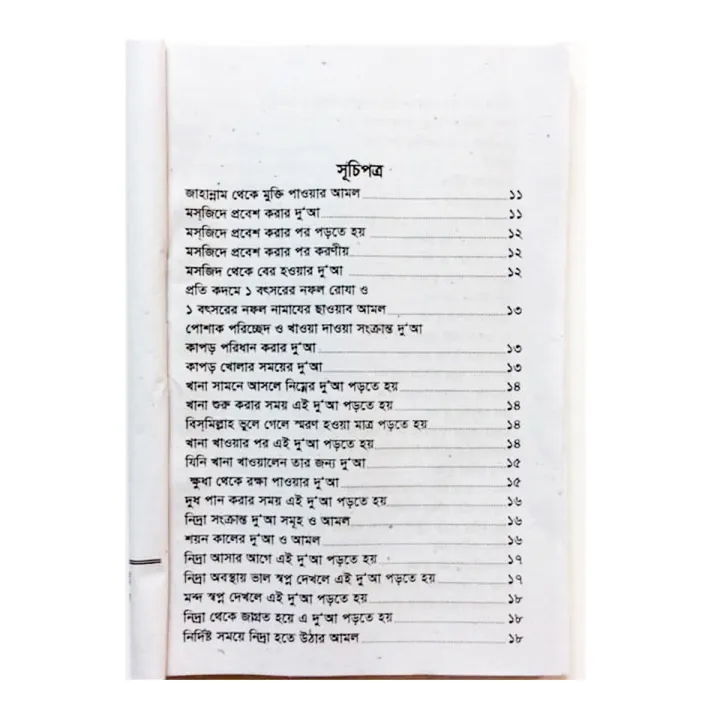 সূচিপত্র
জাহান্নাম থেকে মুক্তি পাওয়ার আমল ১১
মস্‌জিদে প্রবেশ করার দু‘আ ১১
মস্‌জিদে প্রবেশ করার পর পড়তে হয় ১২
মসজিদে প্রবেশ করার পর করণীয় ১২
মসজিদ থেকে বের হওয়ার দু‘আ ১২
প্রতি কদমে ১ বৎসরের নফল রোযা ও
১ বৎসরের নফল নামাযের ছাওয়াব আমল ১৩
পোশাক পরিচ্ছেদ ও খাওয়া দাওয়া সংক্রান্ত দু‘আ
কাপড় পরিধান করার দু‘আ ১৩
কাপড় খোলার সময়ের দু‘আ ১৩
খানা সামনে আসলে নিম্নের দু‘আ পড়তে হয় ১৪
খানা শুরু করার সময় এই দু‘আ পড়তে হয় ১৪
বিস্‌মিল্লাহ ভুলে গেলে স্মরণ হওয়া মাত্র পড়তে হয় ১৪
খানা খাওয়ার পর এই দু‘আ পড়তে হয় ১৪
যিনি খানা খাওয়ালেন তার জন্য দু‘আ ১৫
ক্ষুধা থেকে রক্ষা পাওয়ার দু‘আ ১৫
দুধ পান করার সময় এই দু‘আ পড়তে হয় ১৬
নিদ্রা সংক্রান্ত দু‘আ সমূহ ও আমল ১৬
শয়ন কালের দু‘আ ও আমল ১৬
নিদ্রা আসার আগে এই দু‘আ পড়তে হয় ১৭
নিদ্রা অবস্থায় ভাল স্বপ্ন দেখলে এই দু‘আ পড়তে হয় ১৭
মন্দ স্বপ্ন দেখলে এই দু‘আ পড়তে হয় ১৮
নিদ্রা থেকে জাগ্রত হয়ে এ দু‘আ পড়তে হয় ১৮
নির্দিষ্ট সময়ে নিদ্রা হতে উঠার আমল ১৮